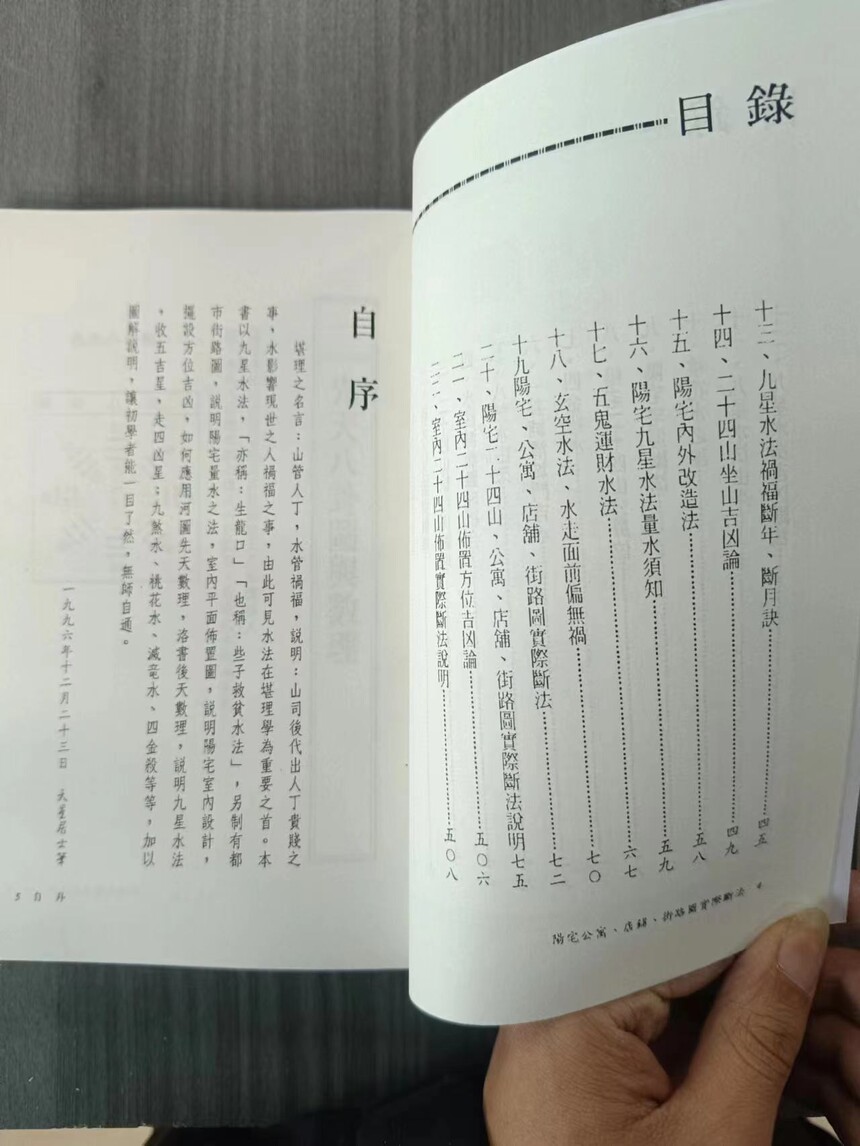 目錄
十三、九星水法禍福斷年、斷月訣……四五
十四、二十四山坐山吉凶論……四九
十五、陽宅內外改造法……五八
十六、陽宅九星水法量水須知……五九
十七、五鬼運財水法……六七
十八、玄空水法、水走面前偏無禍……七〇
十九陽宅、公寓、店舖、街路圖實際斷法……七二
二十、陽宅二十四山、公寓、店舖、街路圖實際斷法說明七五
二一、室內二十四山佈置方位吉凶論……五〇六
二二、室內二十四山佈置實際斷法說明……五〇八
陽宅公寓、店舖、街路圖實際斷法 4
自序
堪理之名言：山管人丁，水管禍福，說明：山司後代出人丁貴賤之
事，水影響現世之人禍福之事，由此可見水法在堪理學為重要之首。本
書以九星水法，「亦稱：生龍口」「也稱：些子救貧水法」，另制有都
市街路圖，說明陽宅量水之法，室內平面佈置圖，說明陽宅室內設計，
擺設方位吉凶，如何應用河圖先天數理，洛書後天數理，說明九星水法
，收五吉星，走四凶星；九煞水、桃花水、滅竜水、四金殺等等，加以
圖解說明，讓初學者能一目了然，無師自通。
一九九六年十二月二十三日 天星居士筆
5 自序